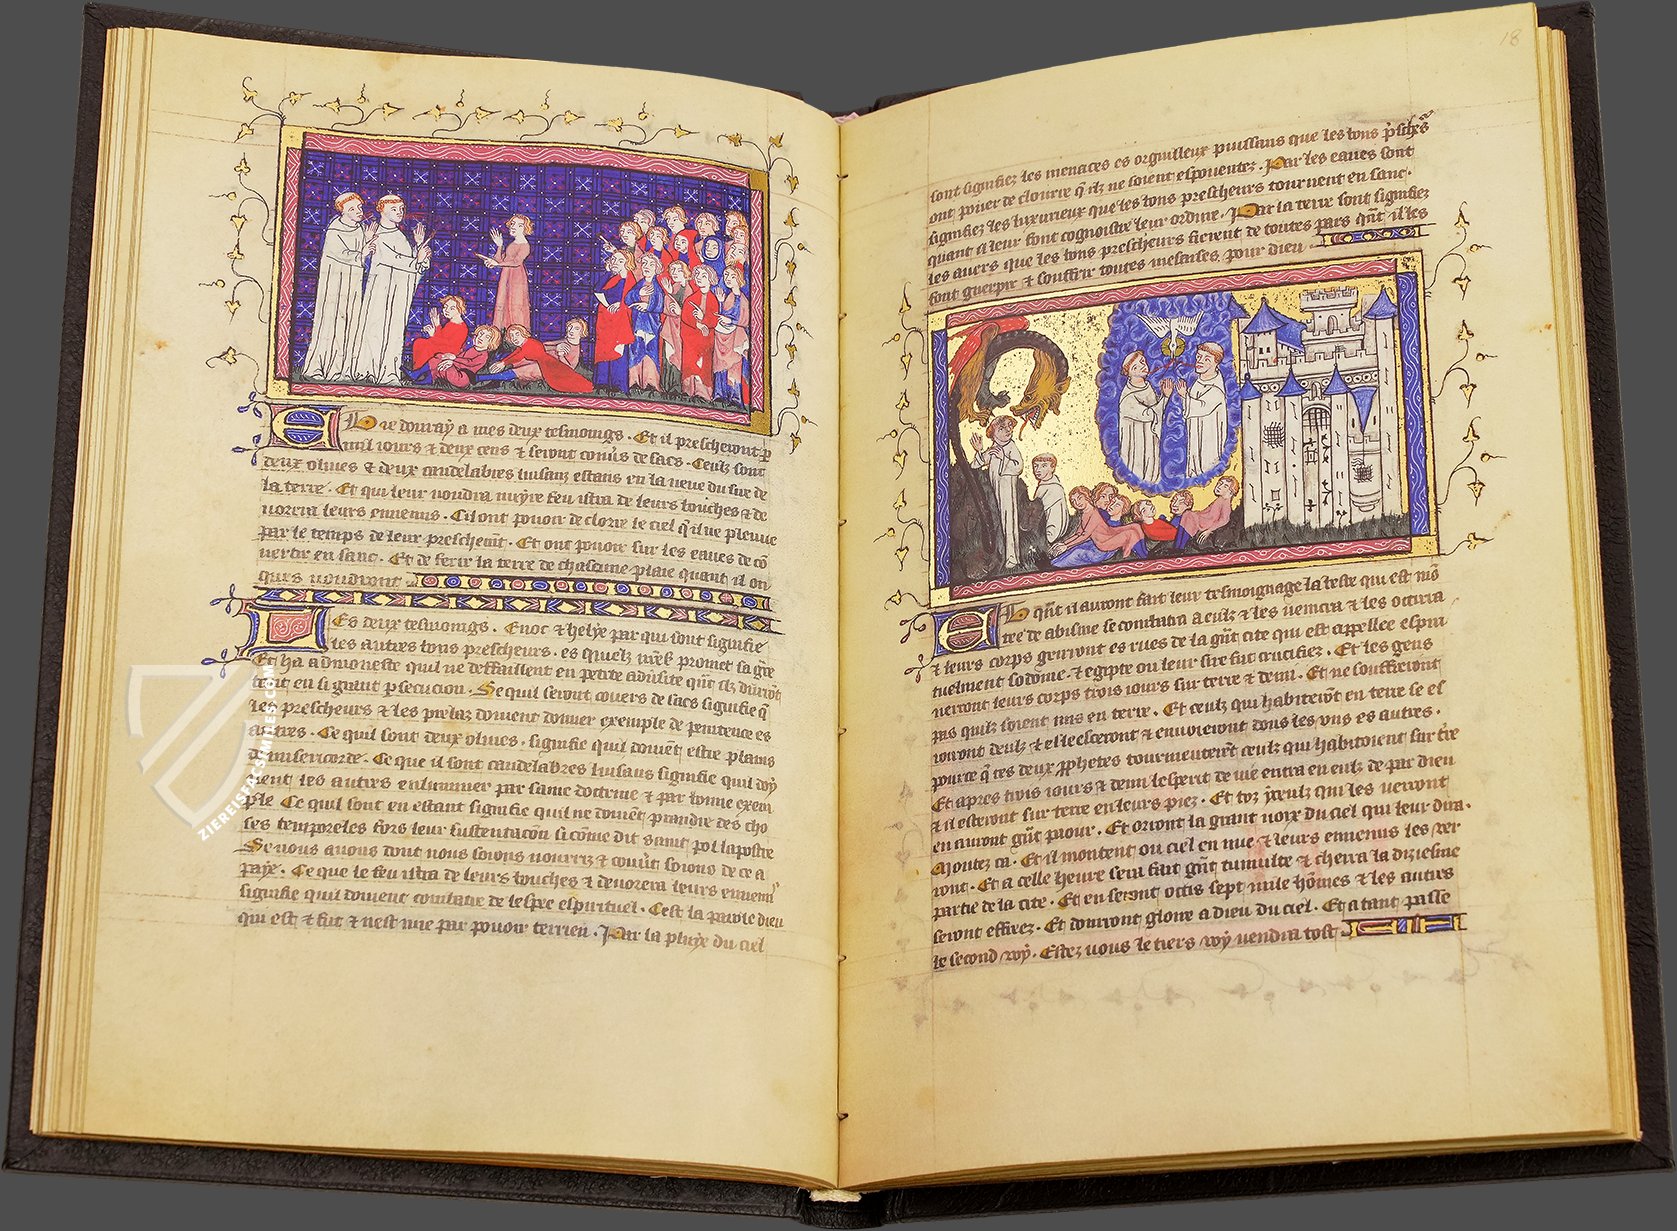 E Je douray a mes deux tesmoings. Et il prescheront p
mil iours & deux cens & seront couus de sacs. Ceulz sont
deux oliues & deux candelabres luisanz estans en la ueue du sire de
la terre. Et qui leur uoudra nuyre feu istra de leurs bouches & de
uorera leurs ennemis. Cil ont pouoir de clorre le ciel q il ne pleuue
par le temps de leur preschemt. Et ont pouoir sur les eaues de co
uertir en sanc. Et de ferir la terre de chascune plaie quant il on
ques uoudront
Les deux tesmoings. Enoc & helye par qui sont signifie
les autres bons prescheurs. es quelz promet sa gre
Et les admoneste quil ne deffaillent en petite aduersite quant ilz duront
en si grant psecucion. Ce quil seront couers de sacs signifie q
les prescheurs & les prelaz doiuent donner exemple de penitence es
autres. Ce quil sont deux oliues. signifie quil doiuent estre plains
de misericorde. Ce que il sont candelabres luisans signifie quil doy
uent les autres enluminer par saine doctrine & par bonne exem
ple Ce quil sont en estant signifie quil ne doiuent prandre des cho
ses temporeles fors leur sustentacon si come dit saint pol lapostre
Se nous auons dont nous soions nourriz & couers soions de ce a
paye. Ce que le feu istra de leurs bouches & deuorera leurs ennemi
signifie quil doiuent combatre de lespee espirituel. Cest la parole dieu
qui est & fut & nest mie par pouoir terrien. Par la pluye du ciel
18
sont signifiez les menaces es orguilleux puissans que les bons pscheurs
ont pouer de clourre q ilz ne soient espouentez. Par les eaues sont
signifiez les luxurieux que les bons prescheurs tournent en sanc.
quant il leur font cognoistre leur ordure. Par la terre sont signifiez
les auers que les bons prescheurs fierent de toutes pars quant il les
font guerpir & souffrir toutes mesaises pour dieu
Et quant il auront fait leur tesmoignage la beste qui est mo
tee de abisme se combatra a eulz & les ueincra & les occirra
& leurs corps gerront es rues de la grant cite qui est appellee espiri
tuelment sodome. & egipte ou leur sire fut crucifiez. Et les gens
uerront leurs corps trois iours sur terre & demi. Et ne soufferront
pas quilz soient mis en terre. Et ceulz qui habiteront en terre se es
ioiront deulz & esleesceront & enuoieront dons les uns es autres.
pource q ces deux pphetes tourmenterent ceulz qui habitoient sur tre
Et apres trois iours & demi lesperit de uie entra en eulz de par dieu
& il esteront sur terre en leurs piez. Et toz yceulz qui les uerront
en auront grant paour. Et orront la grant uoix du ciel qui leur dira.
Montez ca. Et il montent ou ciel en nue & leurs ennemis les uer
ront. Et a celle heure sera fait grant tumulte & cherra la diziesme
partie de la cite. Et en seront occis sept mile homes & les autres
seront effreez. Et douront gloire a dieu du ciel. Et a tant passe
le second uoy. Estez uous le tiers uoy uendra tost
ZIEREISFACSIMILES.COM